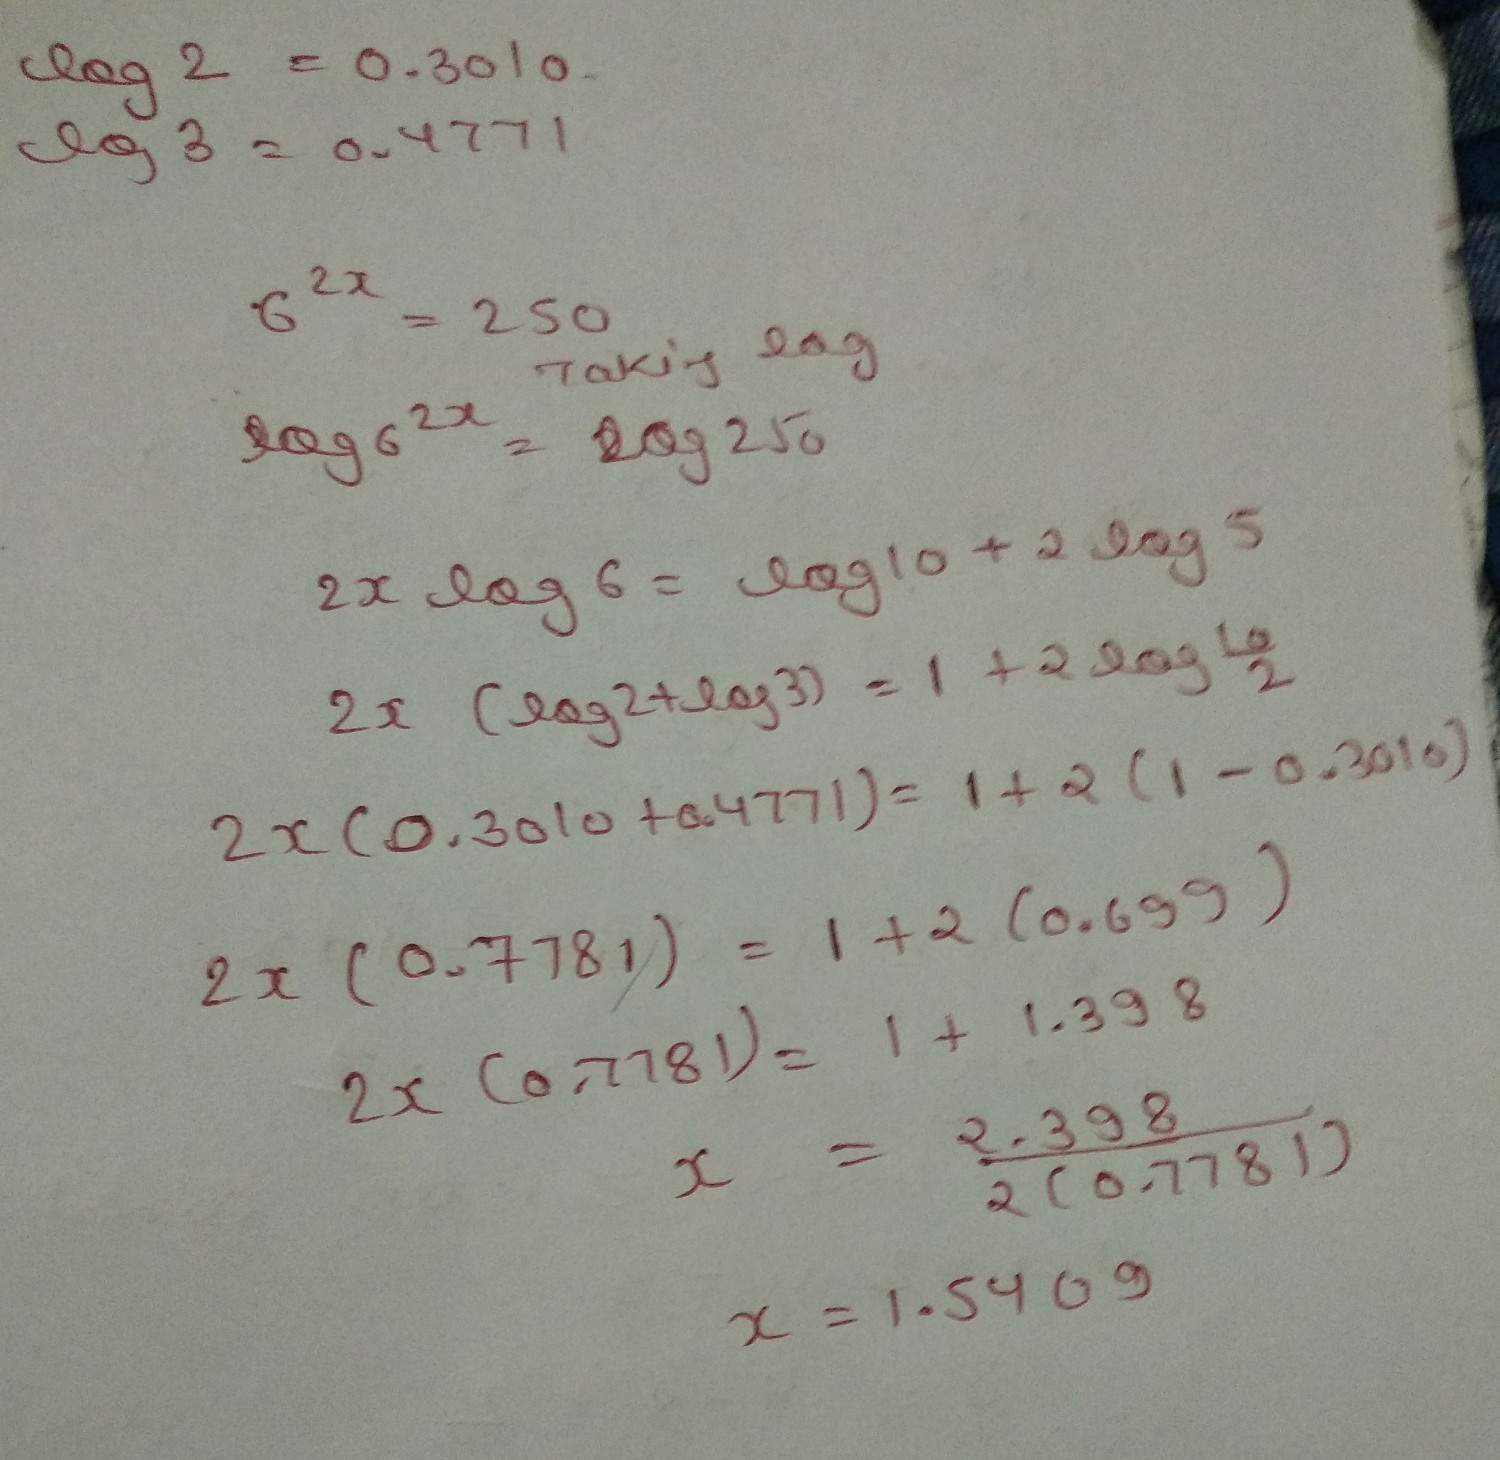 log 2 = 0.3010
log 3 = 0.4771
6^2x = 250
Taking log
log 6^2x = log 250
2x log 6 = log 10 + 2 log 5
2x (log 2 + log 3) = 1 + 2 log 10/2
2x (0.3010 + 0.4771) = 1 + 2 (1 - 0.3010)
2x (0.7781) = 1 + 2 (0.699)
2x (0.7781) = 1 + 1.398
x = 2.398 / 2(0.7781)
x = 1.5409